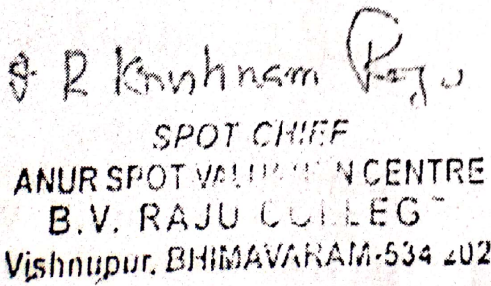 R Krishnam Raju
SPOT CHIEF
ANUR SPOT VALUATION CENTRE
B.V. RAJU COLLEGE
Vishnupur, BHIMAVARAM-534 202